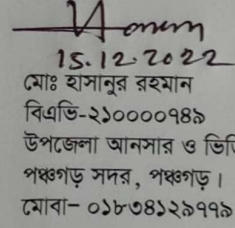 15.12.2022
মোঃ হাসানুর রহমান
বিএভি-২১০০০০৭৪৯
উপজেলা আনসার ও ভিডি
পঞ্চগড় সদর, পঞ্চগড়।
মোবা- ০১৮৩৪১২৯৭৭৯